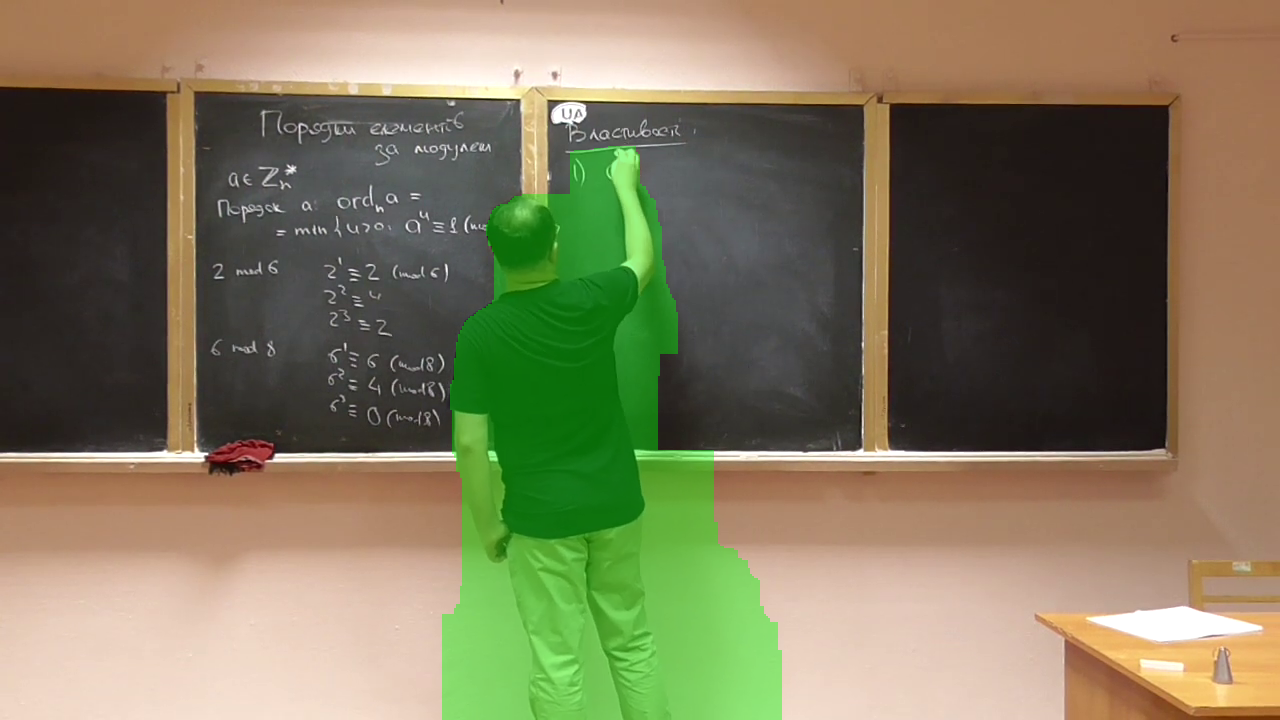 Порядки елементів
за модулем
a ∈ ℤₙ*
Порядок a: ordₙ a =
= min { u>0: aᵘ ≡ 1 (mo
2 mod 6
2¹ ≡ 2 (mod 6)
2² ≡ 4
2³ ≡ 2
6 mod 8
6¹ ≡ 6 (mod 8)
6² ≡ 4 (mod 8)
6³ ≡ 0 (mod 8)
UA
Властивості:
1)